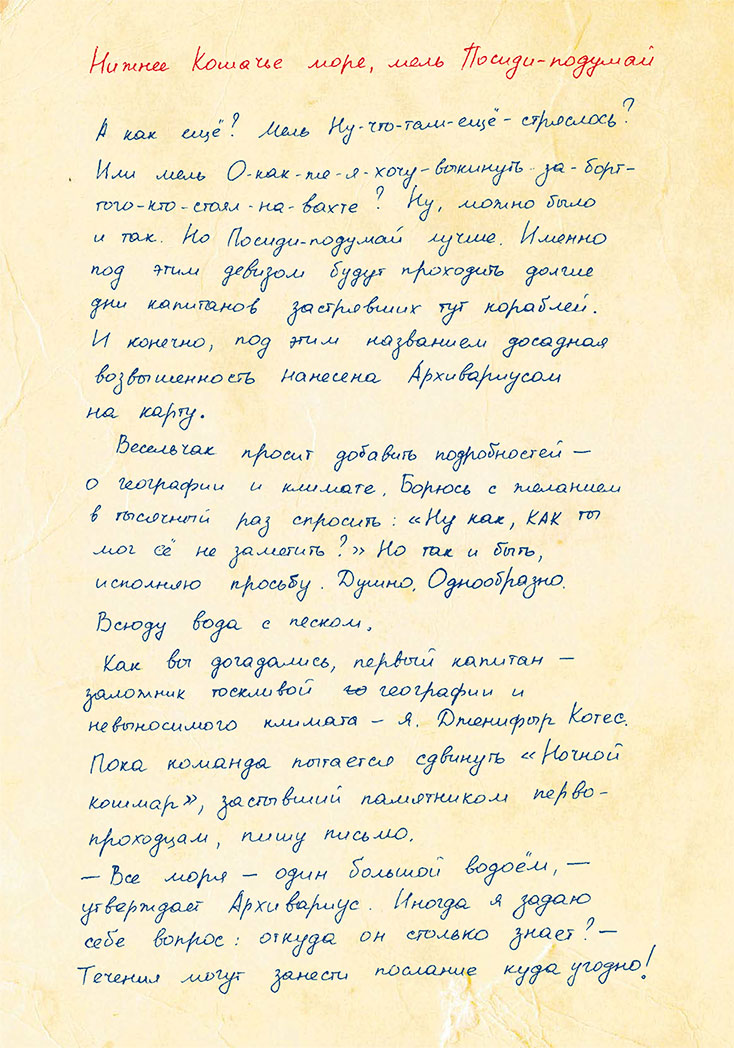 Нижнее Кошачье море, мель Посиди-подумай
А как ещё? Мель Ну-что-там-ещё-стряслось?
Или мель О-как-же-я-хочу-выкинуть-за-борт-
того-кто-стоял-на-вахте? Ну, можно было
и так. Но Посиди-подумай лучше. Именно
под этим девизом будут проходить долгие
дни капитанов застрявших тут кораблей.
И конечно, под этим названием досадная
возвышенность нанесена Архивариусом
на карту.
Весельчак просит добавить подробностей —
о географии и климате. Борюсь с желанием
в тысячный раз спросить: «Ну как, КАК ты
мог её не заметить?» Но так и быть,
исполняю просьбу. Душно. Однообразно.
Всюду вода с песком.
Как вы догадались, первый капитан —
заложник тоскливой географии и
невыносимого климата — я. Дженифыр Котес.
Пока команда пытается сдвинуть «Ночной
кошмар», застывший памятником перво-
проходцам, пишу письмо.
— Все моря — один большой водоём, —
утверждает Архивариус. Иногда я задаю
себе вопрос: откуда он столько знает? —
Течения могут занести послание куда угодно!